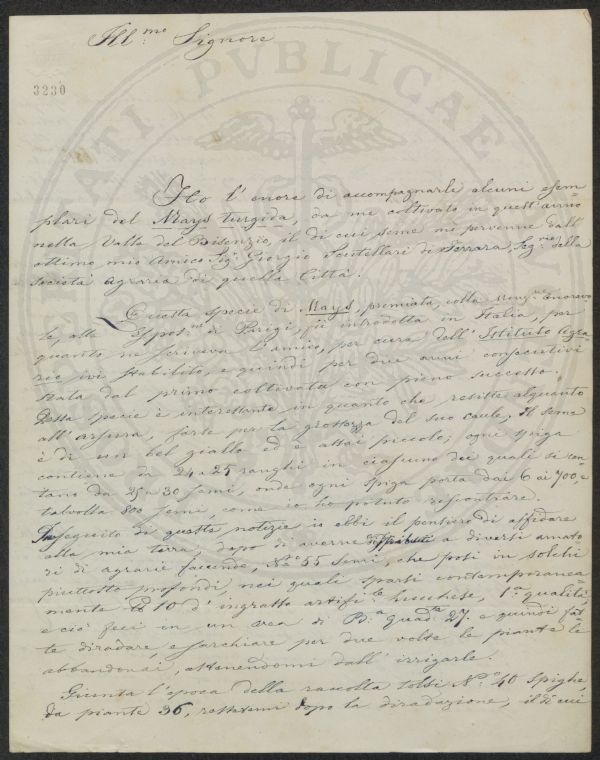 Ill.mo Signore
3230
Ho l'onore di accompagnarle alcuni esem=
plari del Mays turgida, da me coltivato in quest'anno
nella Valle del Bisenzio, il di cui seme mi pervenne dall'
ottimo mio Amico Sig.r Giorgio Scutellari di Ferrara, Seg.rio della
Società Agraria di quella Città.
Questa specie di Mays, premiata colla Menz.ne onorevo
le, alla Espos.ne di Parigi, fù introdotta in Italia, per
quanto ne scriveva l'amico, per cura dell'Istituto Agra=
rio ivi stabilito, e quindi per due anni consecutivi
stata dal primo coltivata con pieno successo.
Detta specie è interessante in quanto che resiste alquanto
all'arsura, forse per la grossezza del suo caule; Il seme
è di un bel giallo ed è assai piccolo; ogni spiga
contiene da 24 a 25 ranghi in ciascuno dei quali si con
tano da 25 a 30 semi, onde ogni spiga porta dai 6 ai 700, e
talvolta 800 semi, come io ho potuto riscontrare.
Inseguito di queste notizie io ebbi il pensiero di affidare
alla mia terra, dopo di averne distribuiti a diversi amato
ri di agrarie faccende, N.o 55 Semi, che posi in solchi
piuttosto profondi, nei quali sparsi contemporanea=
mente 10 d'ingrasso artifi.le Lucchese, 1.a qualità
e ciò feci in un area di B.a quad.te 27. e quindi fat
te diradare, e sarchiare per due volte le piante le
abbandonai, astenendomi dall'irrigarle.
Giunta l'epoca della raccolta tolsi N.o 40 Spighe,
da piante 36, restatemi dopo la diradazione, il di cui